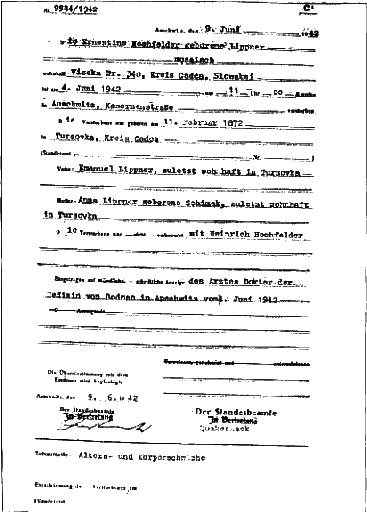 Nr. 9844/1942 C
Auschwitz, den 9. Juni 1942
Die Ernestine Hochfelder geborene Lippner
mosaisch
wohnhaft Kreis Slowakei
ist am 4. Juni 1942 um 11 Uhr 00 Minuten
in Auschwitz, Kasernenstraße verstorben.
Die Verstorbene war geboren am 11. Februar 1872
in Turzovka, Kreis
(Standesamt Nr. )
Vater: Emanuel Lippner, zuletzt wohnhaft in Turzovka
Mutter: Anna Lippner geborene zuletzt wohnhaft
in Turzovka
Die Verstorbene war nicht verheiratet mit Heinrich Hochfelder
Eingetragen auf mündliche schriftliche Anzeige des Arztes Doktor der
Medizin von Bodman in Auschwitz vom 4. Juni 1942
Anzeigende
Vorgelesen, genehmigt und unterschrieben
Die Übereinstimmung mit dem
Erstbuch wird beglaubigt
Auschwitz, den 9. 6. 1942
Der Standesbeamte
In Vertretung
Der Standesbeamte
In Vertretung
Quakernack
Todesursache: Alters- und Körperschwäche
Eheschliessung der Verstorbenen am